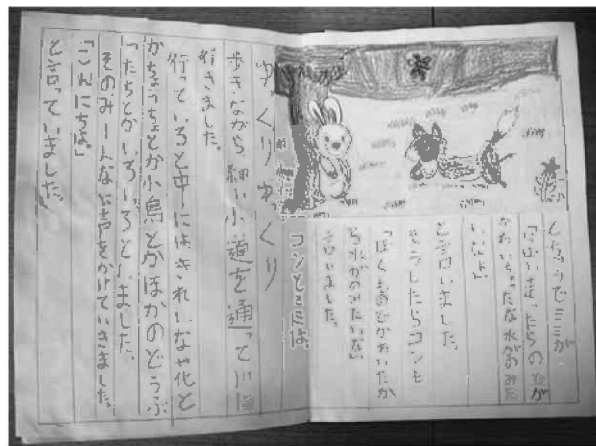 とちゅうでミミが
走ったらのどが
水がのみた
いなよ」
と言いました。
そうしたらコンも
「ぼくものどがかわいたか
ら水がのみたいな」
言いました。
コンとミミは、
ゆっくりゆっくり
歩きながら、細い小道を通って川に
行きました。
行っていると中にはきれいなお花と
かちょうちょとか小鳥とかほかのどうぶ
つたちとかいろいろといました。
そのみーんなに声をかけていきました。
「こんにちは」
と言っていました。